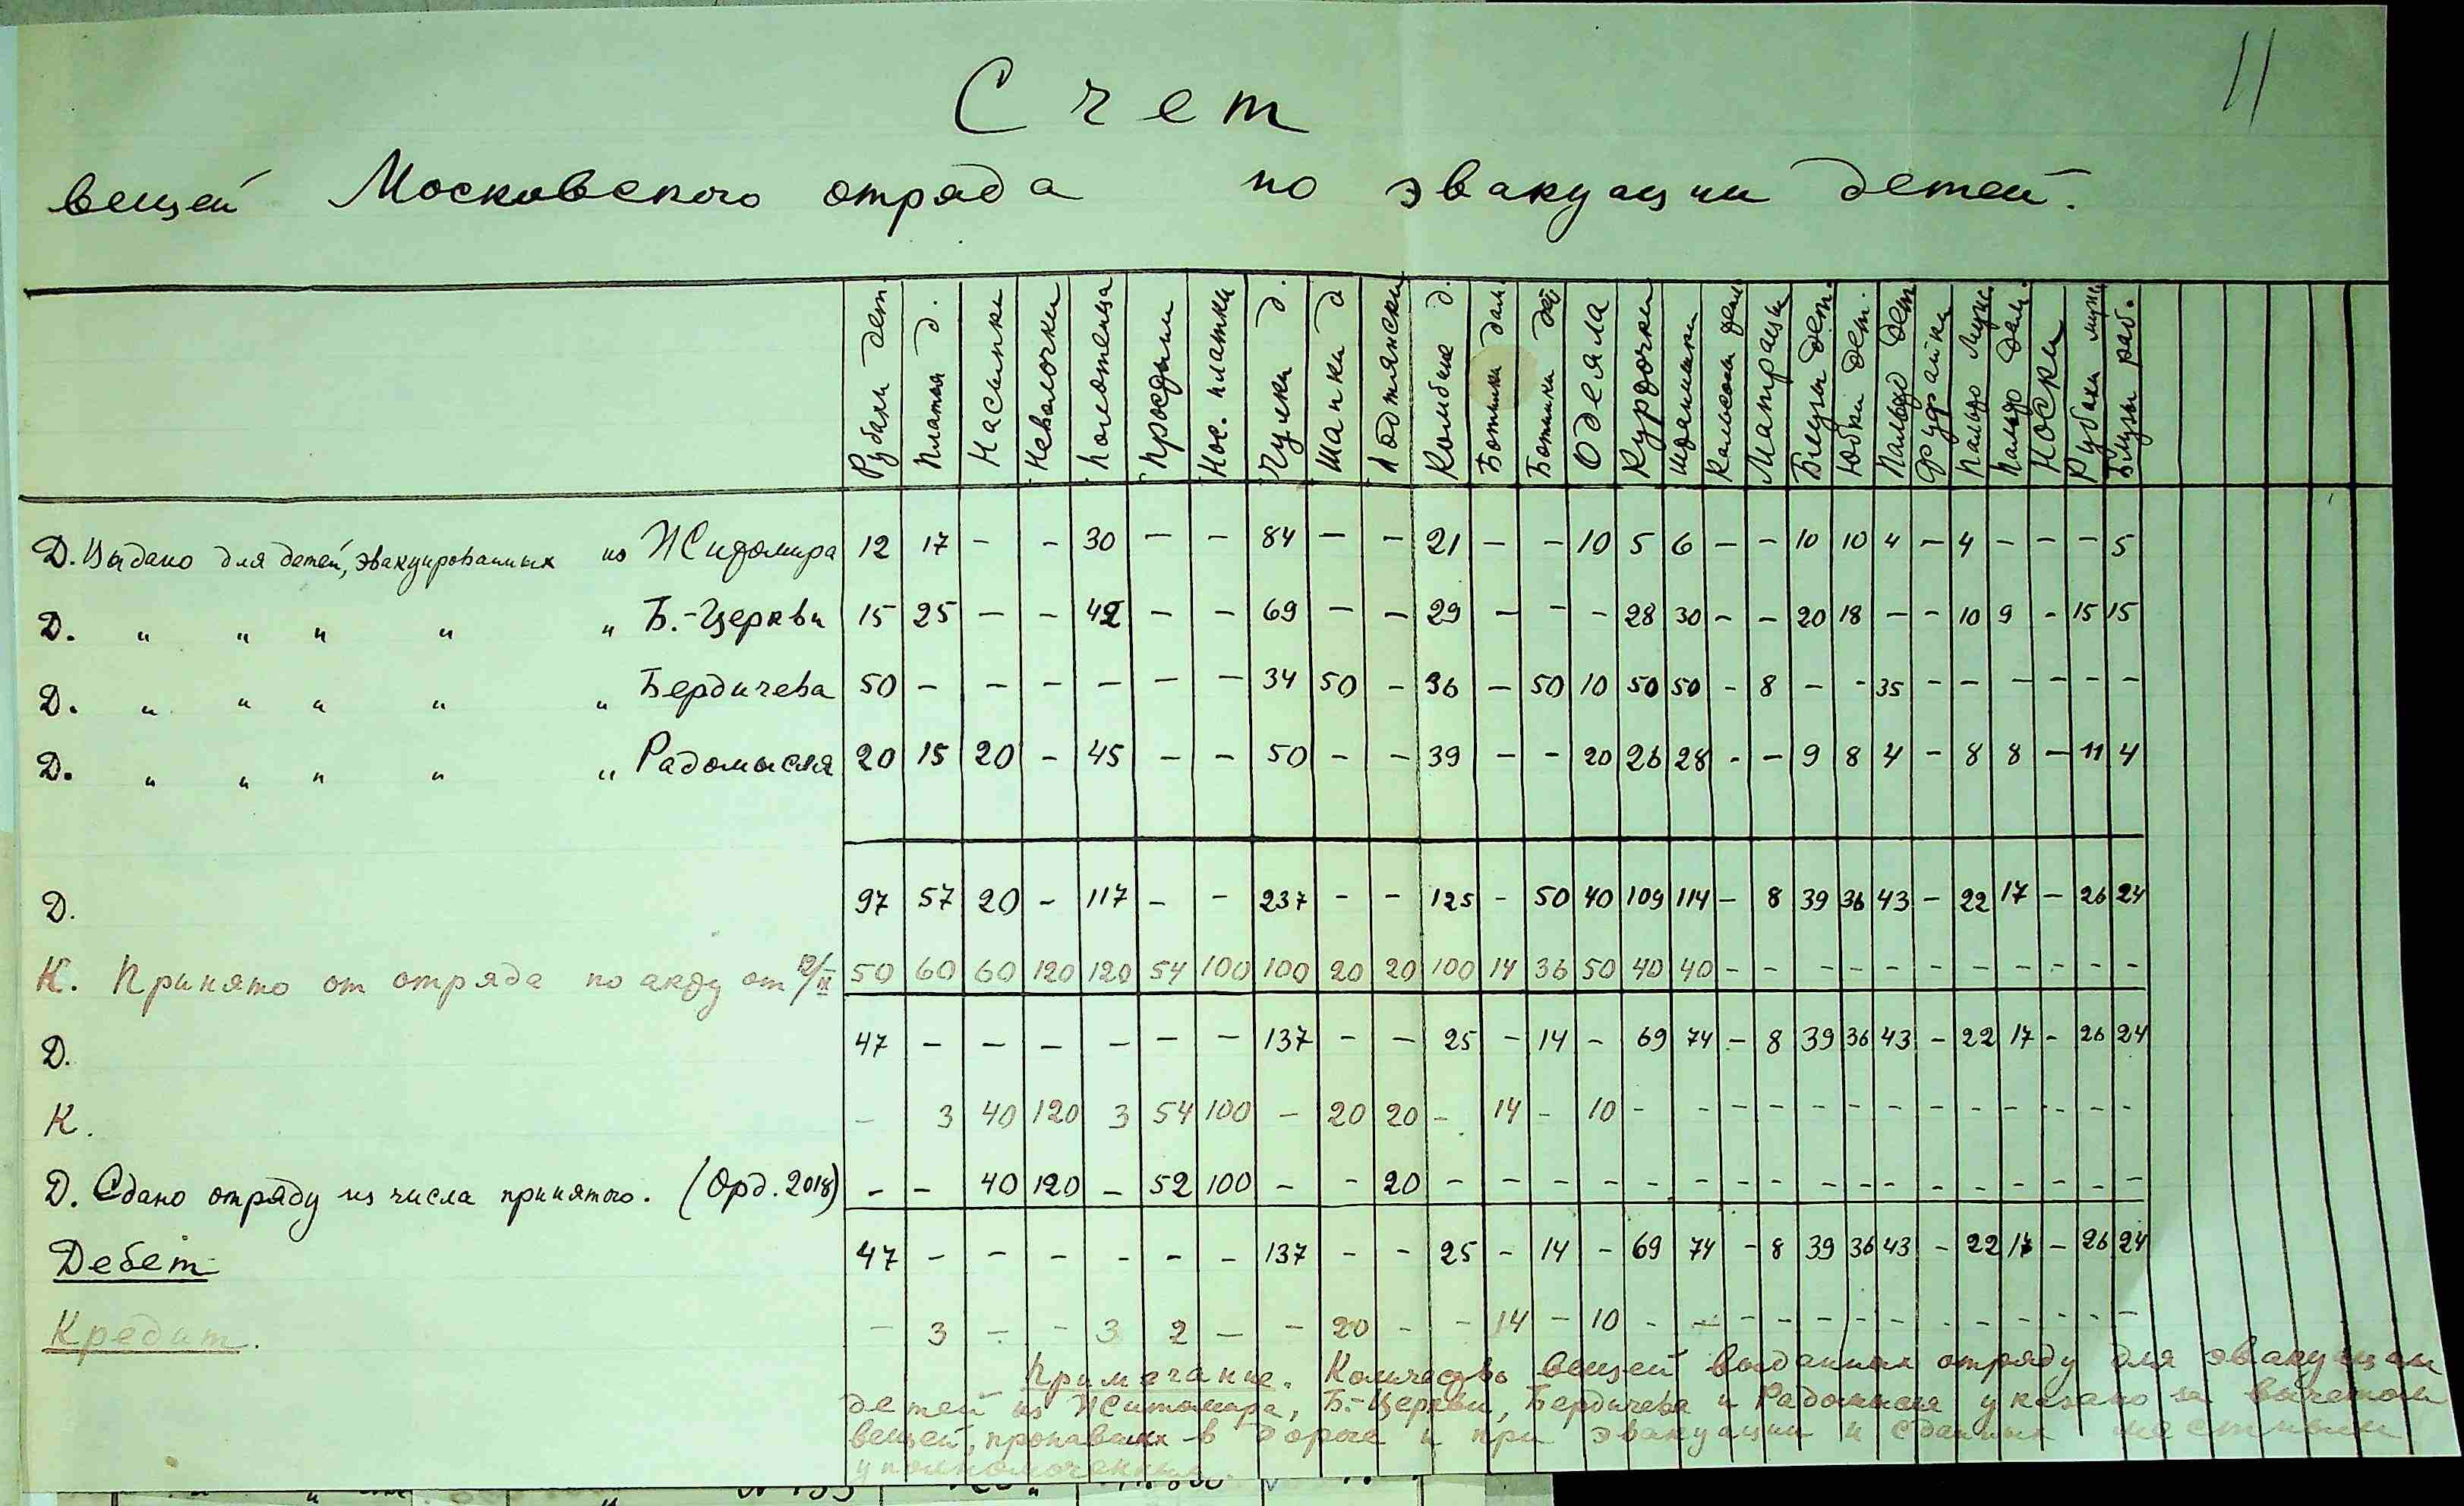 11
Счет
вещей Московского отряда по эвакуации детей.
Рубахи дет. Платья д. Насыпки Наволочки Полотенца Простыни Нос. платки Чулки д. Шапки д Подтяжки Комбине д. Ботинки дам. Ботинки дет. Одеяла Курточки Штанишки Кальсоны Матрацы Блузы дет. Юбки дет. Пальто дет Фуфайки Пальто муж. Пальто дам. Носки Рубахи муж. Блузы раб.
Д. Выдано для детей, эвакуированных из Житомира 12 17 - - 30 - - 84 - - 21 - - 10 5 6 - - 10 10 4 - 4 - - - 5
Д. " " " " " Б.-Церкви 15 25 - - 42 - - 69 - - 29 - - - 28 30 - - 20 18 - - 10 9 - 15 15
Д. " " " " " Бердичева 50 - - - - - - 34 50 - 36 - 50 10 50 50 - 8 - - 35 - - - - - -
Д. " " " " " Радомысля 20 15 20 - 45 - - 50 - - 39 - - 20 26 28 - - 9 8 4 - 8 8 - 11 4
Д. 97 57 20 - 117 - - 237 - - 125 - 50 40 109 114 - 8 39 36 43 - 22 17 - 26 24
К. Принято от отряда по акту от 12/IX 50 60 60 120 120 54 100 100 20 20 100 14 36 50 40 40 - - - - - - - - - - -
Д. 47 - - - - - - 137 - - 25 - 14 - 69 74 - 8 39 36 43 - 22 17 - 26 24
К. - 3 40 120 3 54 100 - 20 20 - 14 - 10 - - - - - - - - - - - - -
Д. Сдано отряду из числа принятого. (Орд. 2018) - - 40 120 - 52 100 - - 20 - - - - - - - - - - - - - - - - -
Дебет 47 - - - - - - 137 - - 25 - 14 - 69 74 - 8 39 36 43 - 22 17 - 26 24
Кредит. - 3 - - 3 2 - - 20 - - 14 - 10 - - - - - - - - - - - - -
Примечание. Количество вещей выданных отряду для эвакуации
детей из Житомира, Б.-Церкви, Бердичева и Радомысля указано за вычетом
вещей, пропавших в дороге и при эвакуации и сданных местным
уполномоченным.